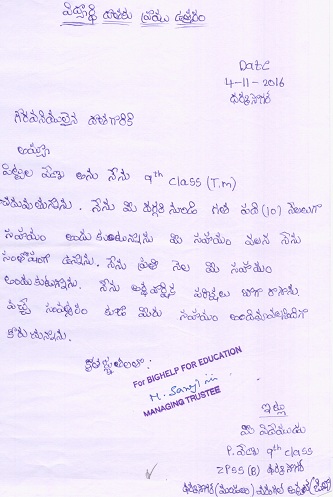 విద్యార్థి దాతకు వ్రాయు ఉత్తరం
Date
4-11-2016
ధర్మసాగర్
గౌరవనీయులైన దాతగారికి
అయ్యా
పిట్టల వేణు అను నేను 9th class (T.m)
చదువుతున్నాను. నేను మీ దగ్గర నుండి గత పది (10) నెలలుగా
సహాయం అందుకుంటున్నాను మీ సహాయం వలన నేను
సంతోషంగా ఉన్నాను. నేను ప్రతి నెల మీ సహాయం
అందుకుంటున్నాను. నేను పరీక్షలు బాగా రాసాను.
వచ్చే సంవత్సరం కూడా మీరు సహాయం
కోరుతున్నాను.
కృతజ్ఞతలతో:
For BIGHELP FOR EDUCATION
MANAGING TRUSTEE
ఇట్లు
మీ విధేయుడు
P. వేణు 9th class
ZPSS (B) ధర్మసాగర్